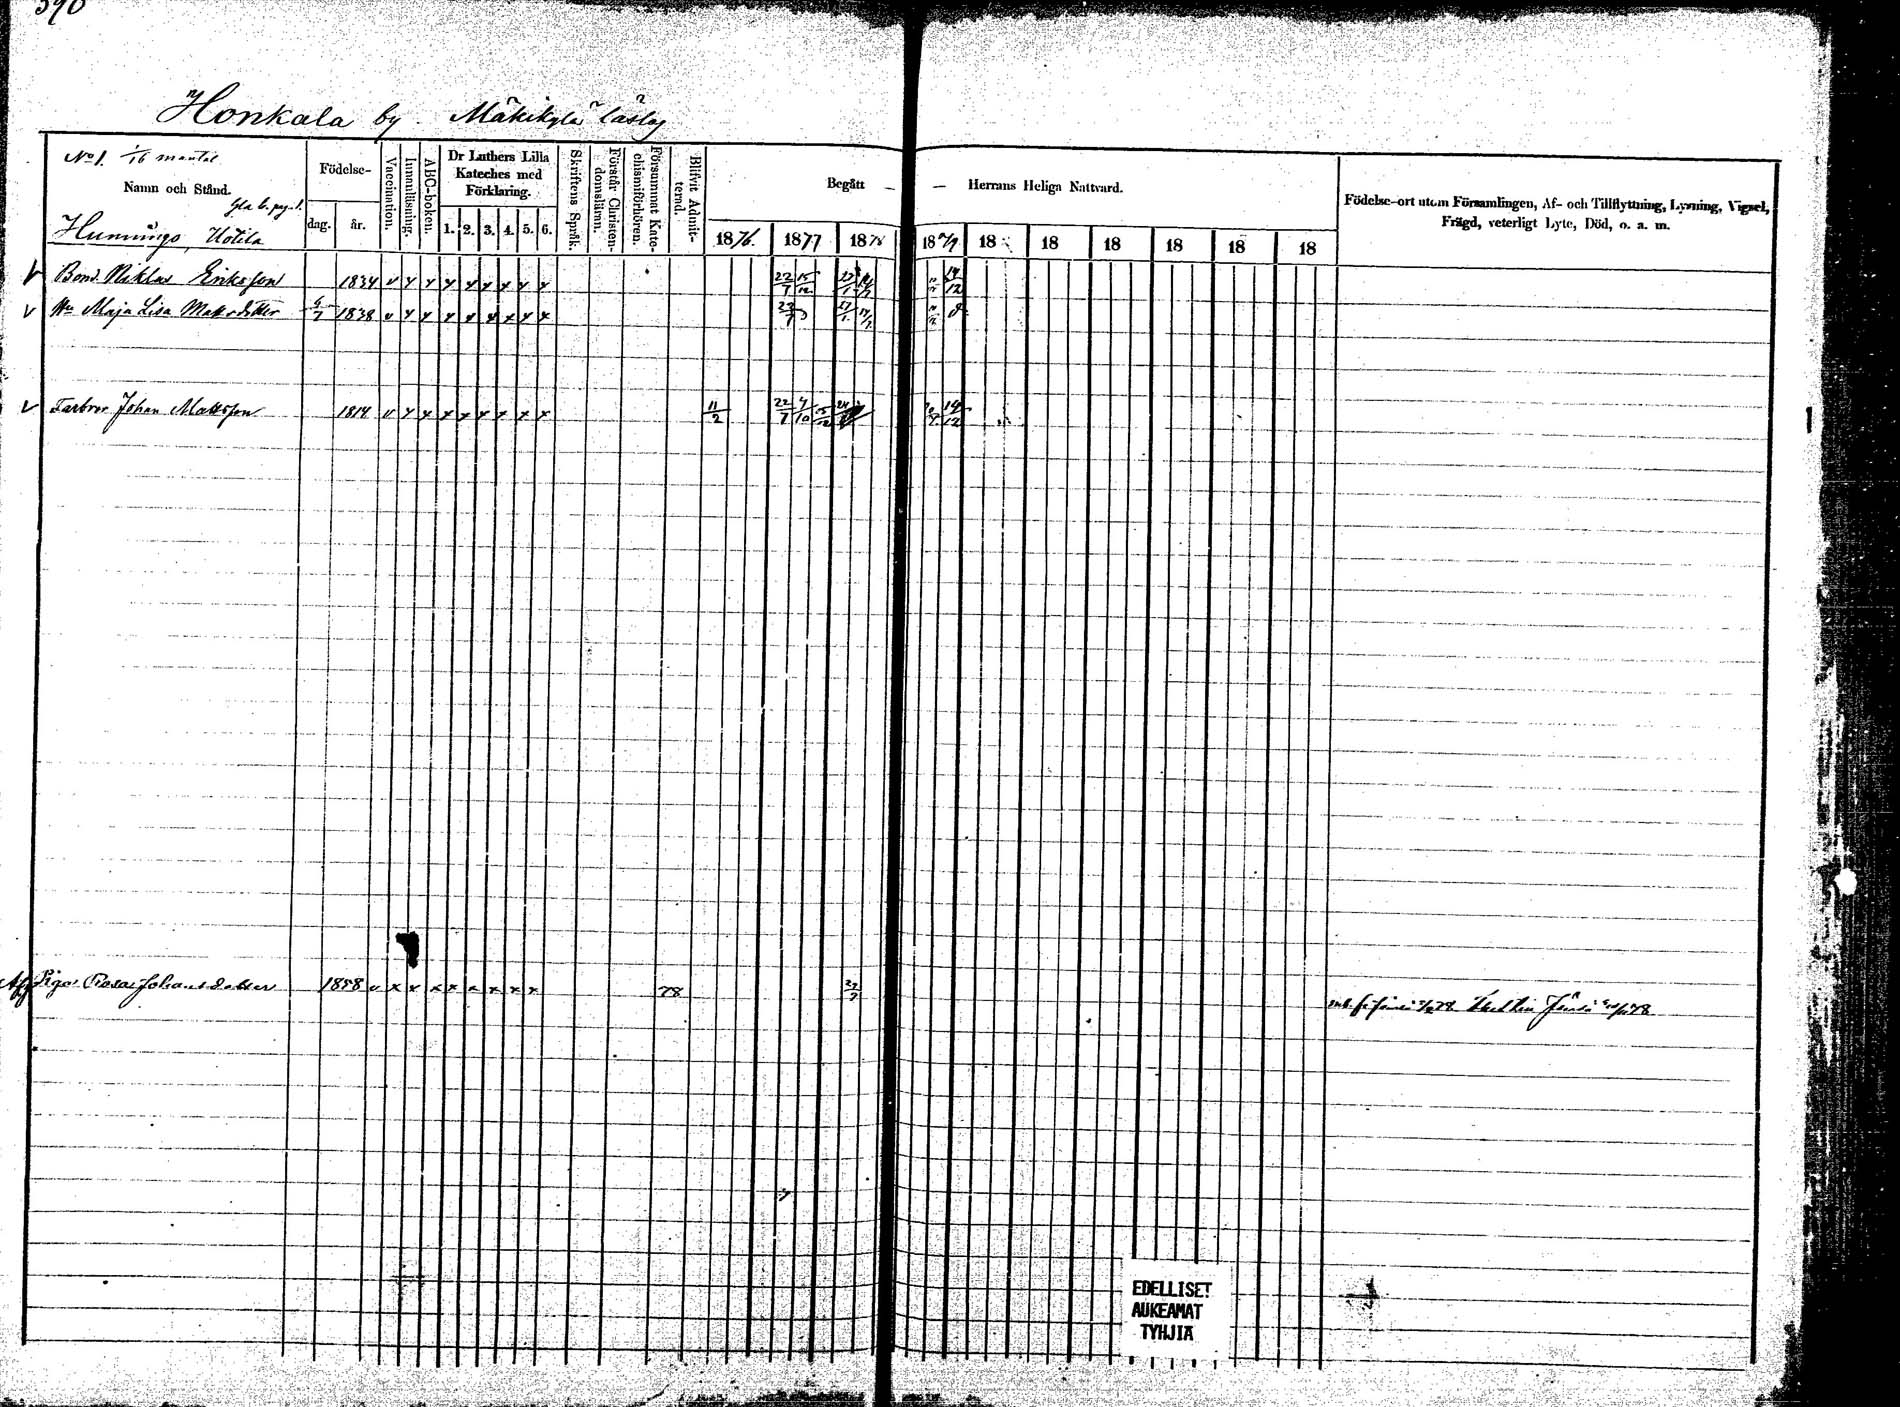 390
Honkala by. Mäkikylä läslag
No 1. 1/16 mantal
Namn och Stånd.
Gla b. pag. 1.
Hunningo, Uotila
Födelse-
dag. år.
Vaccination.
Innanläsning.
ABC-boken.
Dr Luthers Lilla Kateches med Förklaring.
1. 2. 3. 4. 5. 6.
Skriftens Språk.
Förstår Christendomslärun.
Försummat Katechismiförhören.
Blifvit Admitterad.
Begått — — Herrans Heliga Nattvard.
1876. 1877 1878 1879 18 18 18 18 18 18
Födelse-ort utom Församlingen, Af- och Tillflyttning, Lysning, Vigsel, Frägd, veterligt Lyte, Död, o. a. m.
v Bond. Niklas Eriksson 1834 v x x x x x x x x 22/7 15/12 27/1 14/12
v Hu Maja Lisa Matsdotter 1838 v x x x x x x x x 22/7 27/1
v Farbror Johan Mattsson 1814 v x x x x x x x x 11/2 22/7 7/10 15/12 14/12
Piga Rosa Johansdotter 1858 v x x x x x x x x 78 27/7
EDELLISET
AUKEAMAT
TYHJIÄ